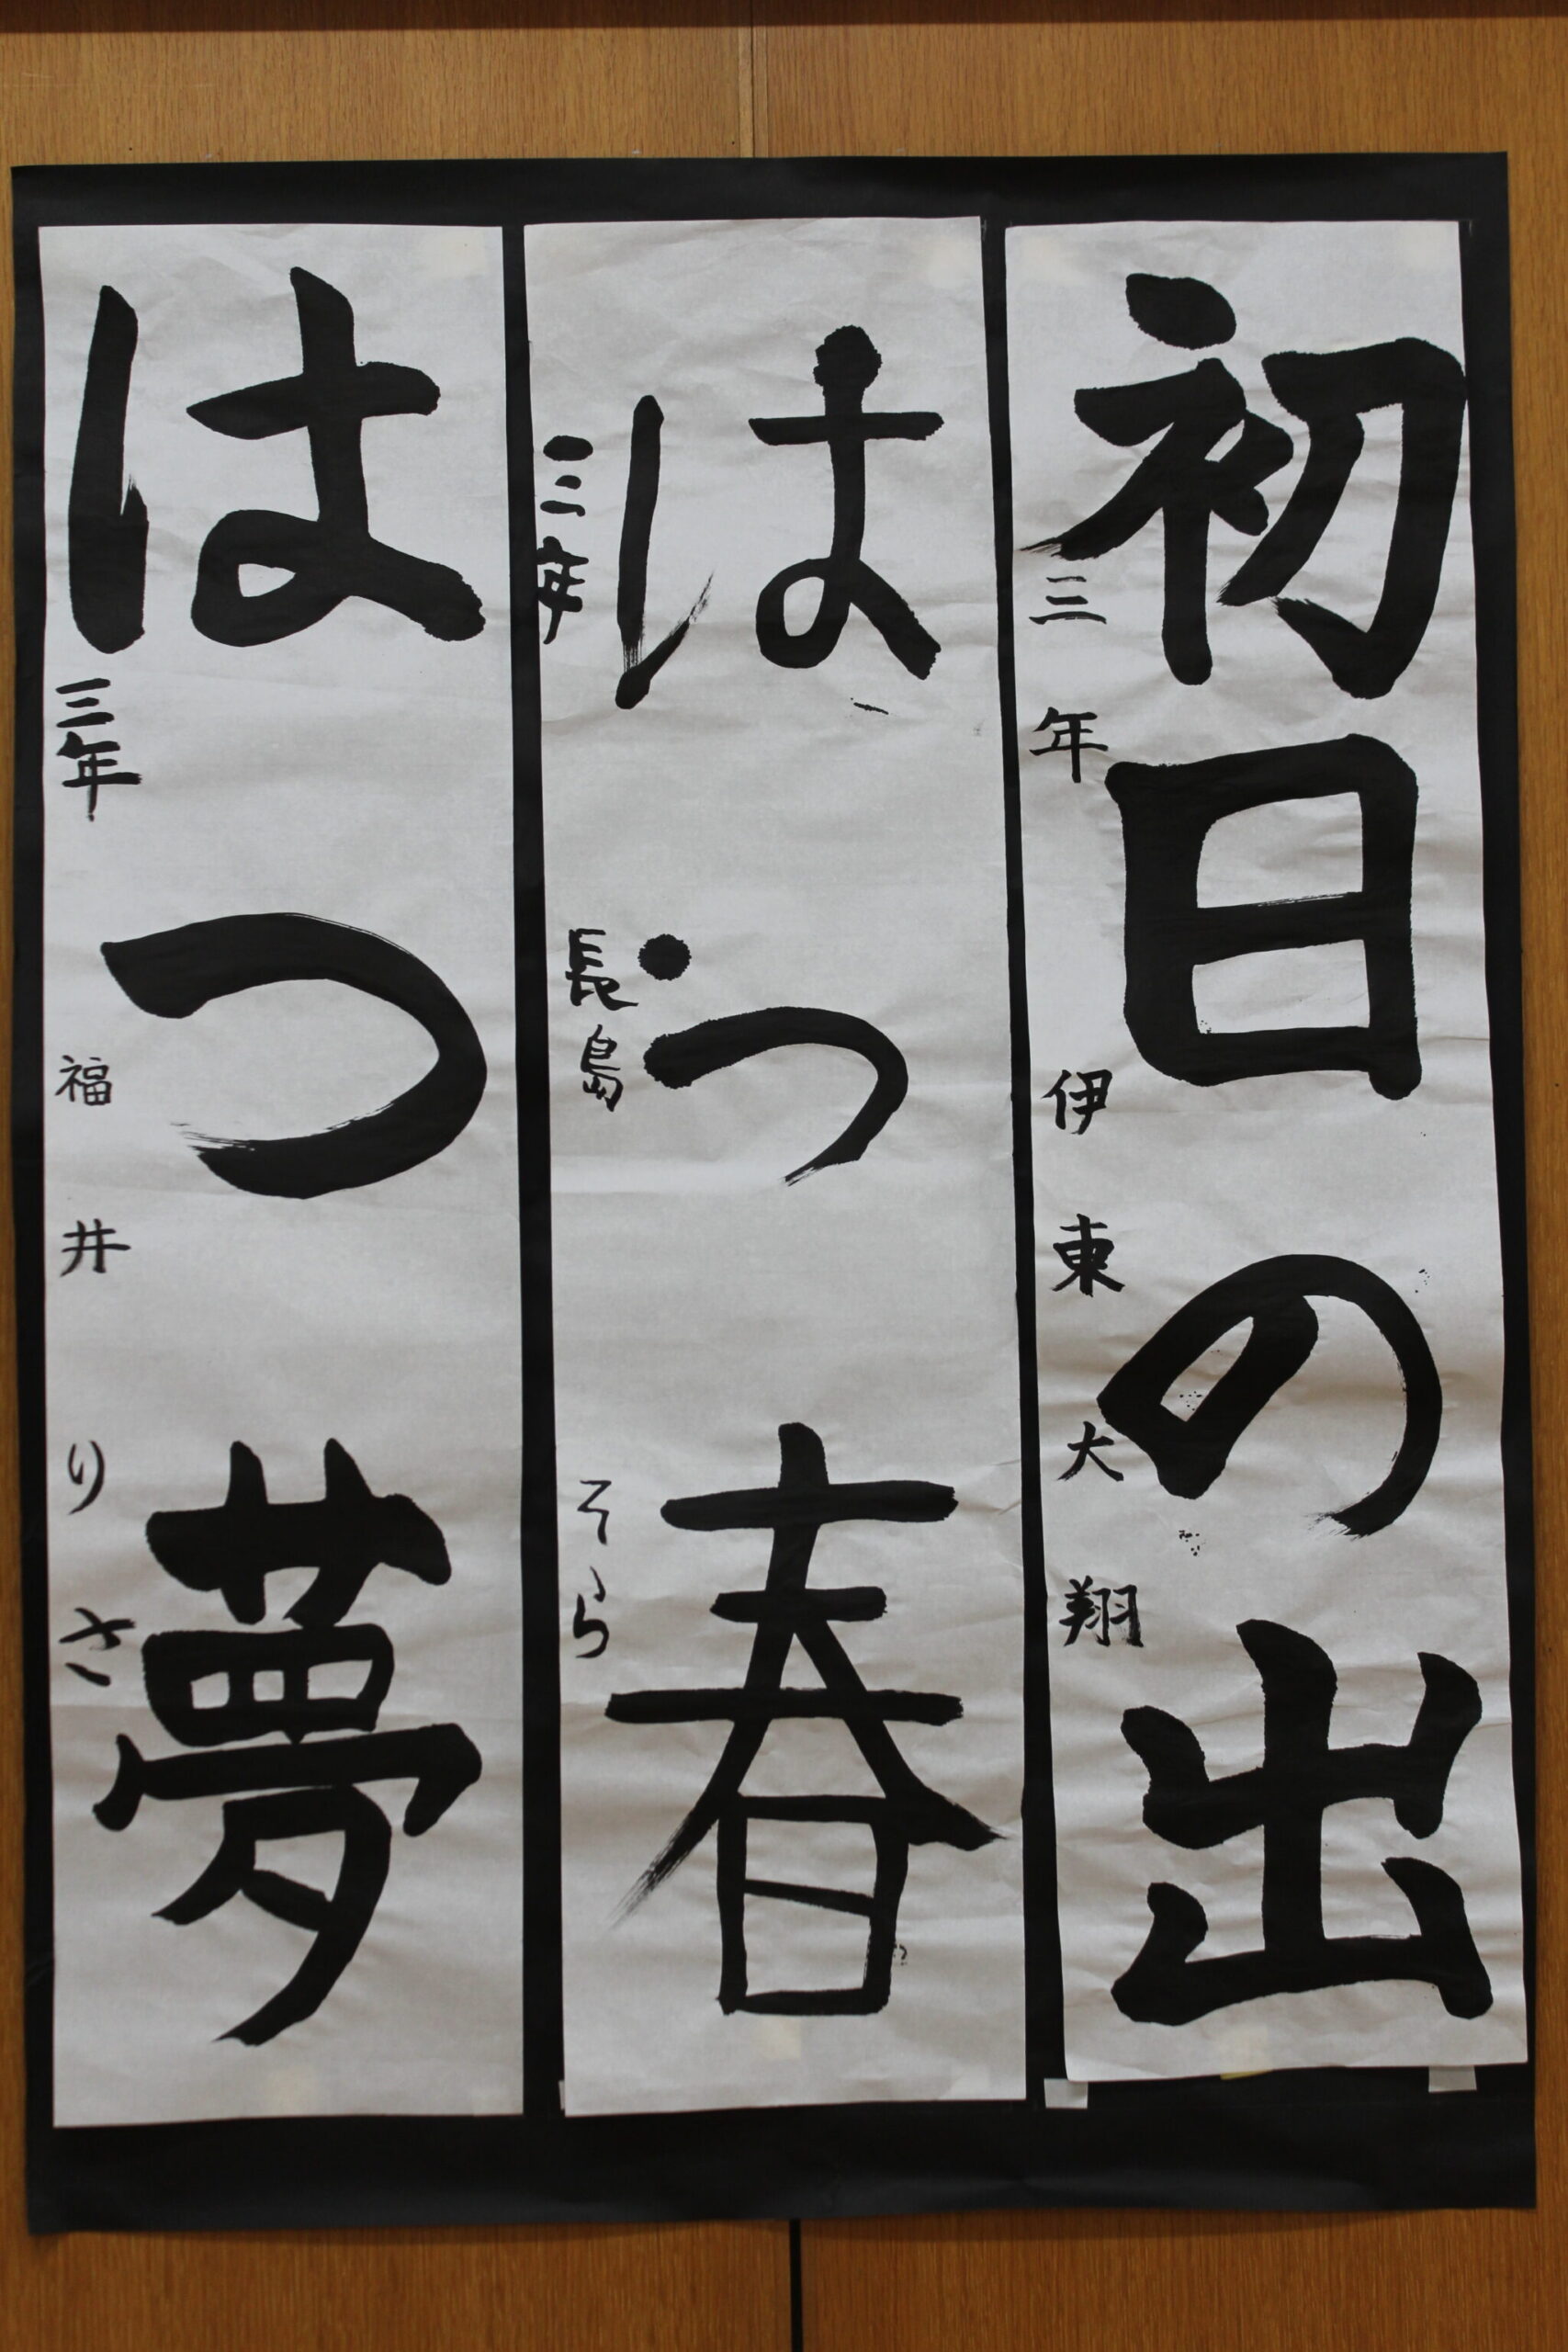 初日の出
三年 伊東大翔
はつ春
三年 長島そら
はつ夢
三年 福井りさ